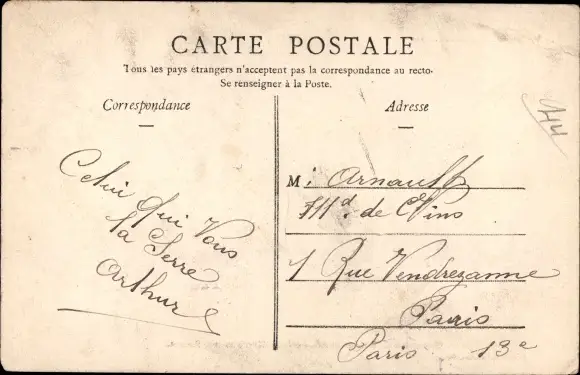 CARTE POSTALE
Tous les pays étrangers n'acceptent pas la correspondance au recto-
Se renseigner à la Poste.
Correspondance
Adresse
Celui Qui Vous
la Serre
Arthur
M. Arnault
Md. de Vins
1 Rue Vendrezanne
Paris
Paris 13e